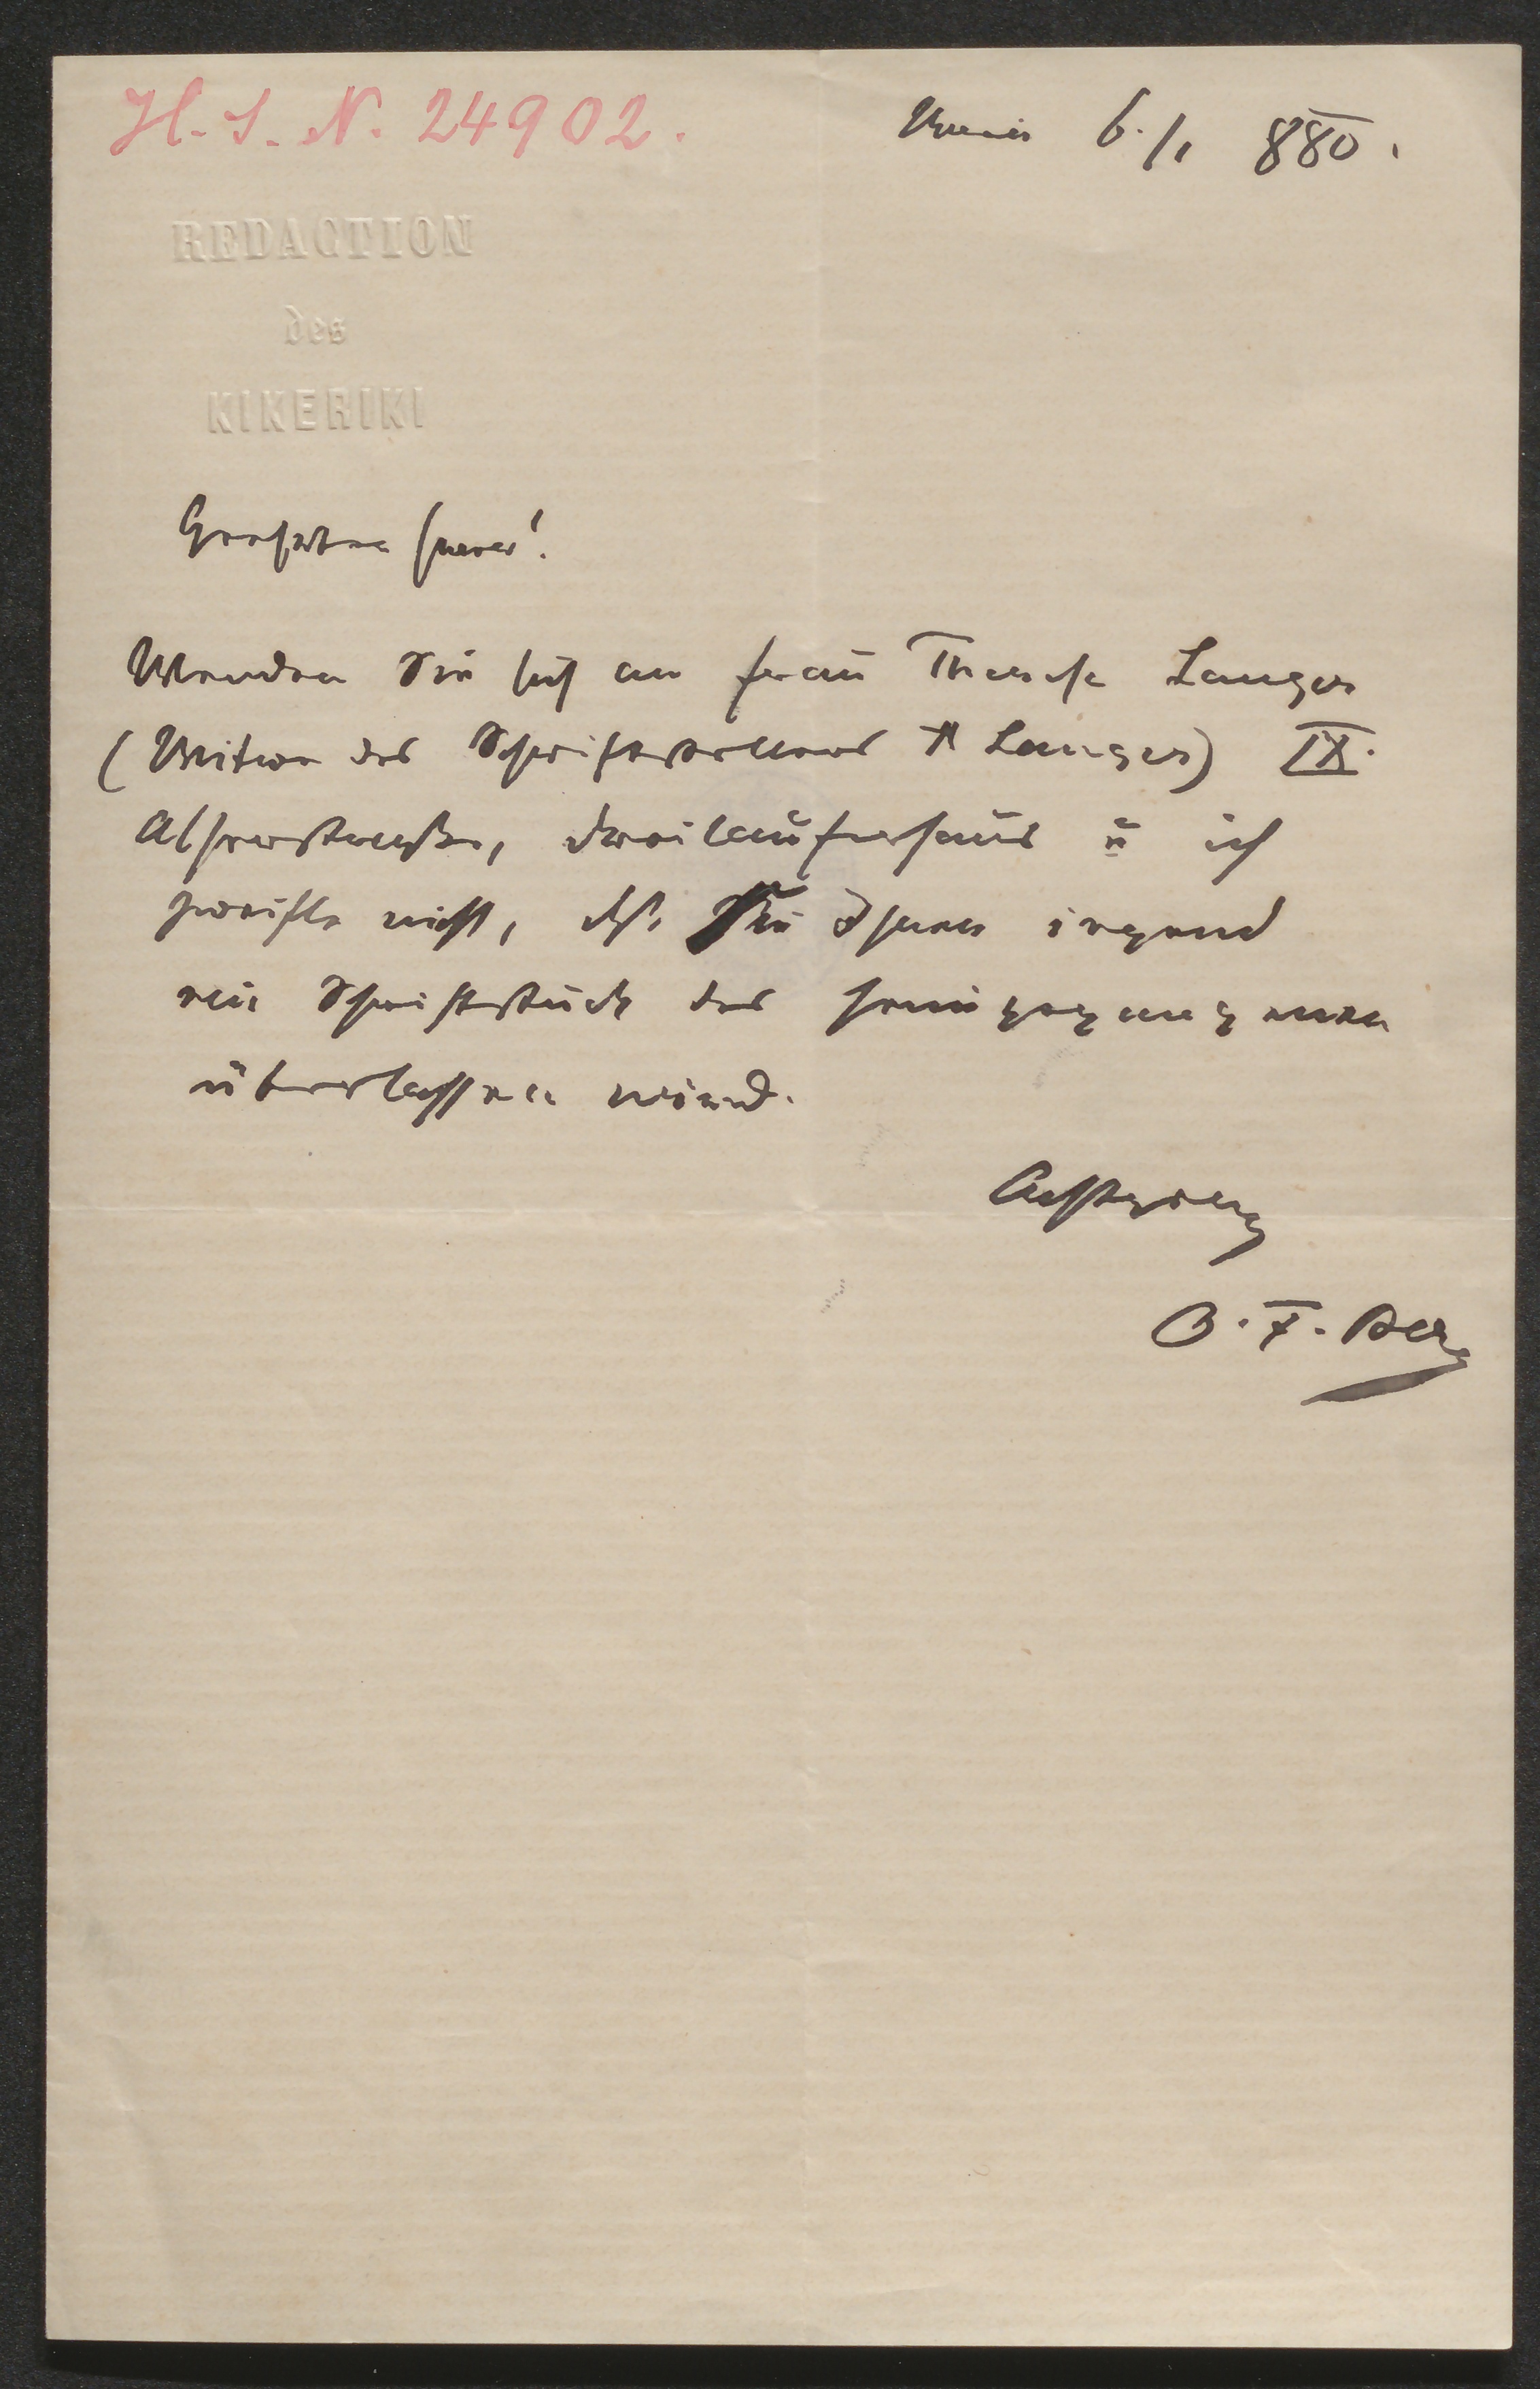 H. I. N. 24902.
Wien 6./1 880.
REDACTION
des
KIKERIKI
Geehrter Herr!
Wenden Sie sich an Frau Therese Langer
(Witwe des Schriftstellers A Langer) IX.
Alserstraße, Dreilauferhaus u ich
zweifle nicht, dß. Sie Ihnen irgend
ein Schriftstück des Heimgegangenen
überlassen wird.
Achtungsv
O. F. Berg